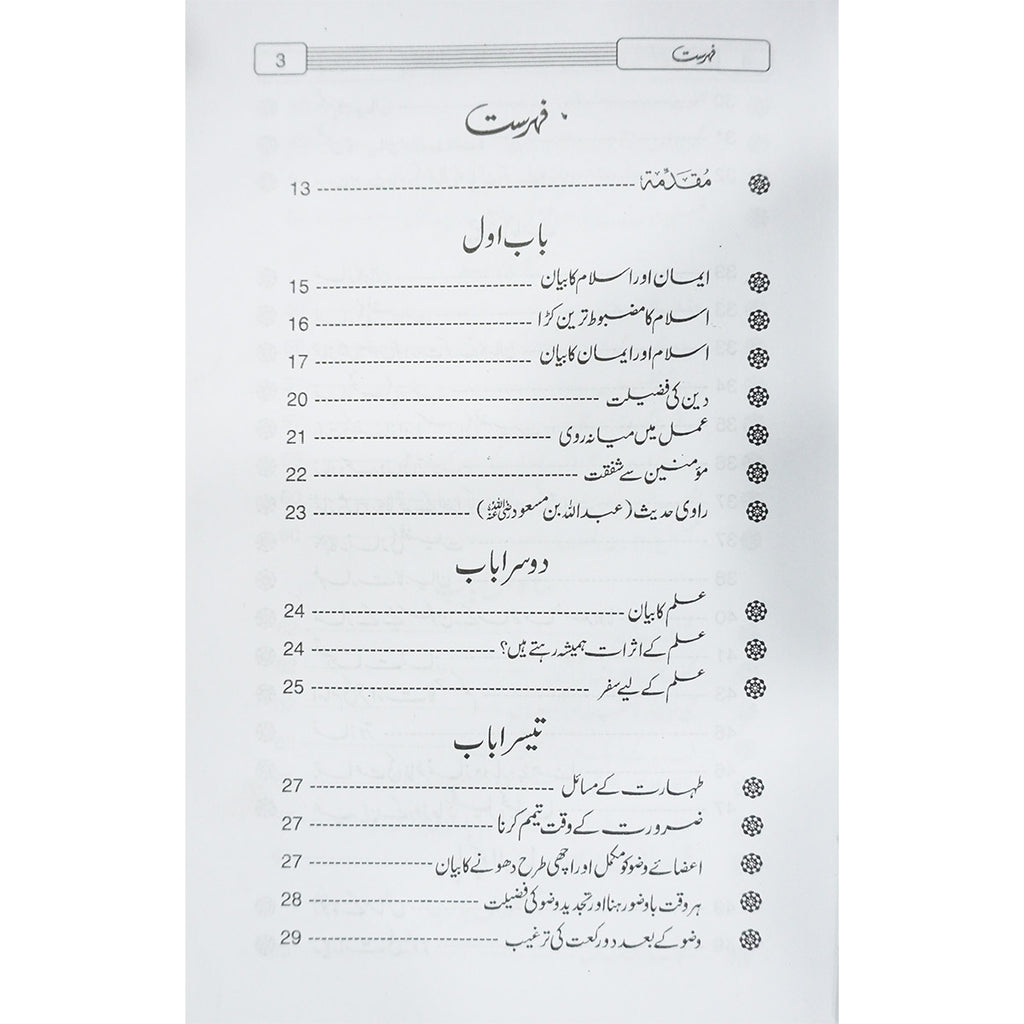 فہرست 3
فہرست
مُقَدِّمَة ---------------------------- 13
باب اول
ایمان اور اسلام کا بیان ---------------------------- 15
اسلام کا مضبوط ترین کڑا ---------------------------- 16
اسلام اور ایمان کا بیان ---------------------------- 17
دین کی فضیلت ---------------------------- 20
عمل میں میانہ روی ---------------------------- 21
مؤمنین سے شفقت ---------------------------- 22
راوی حدیث (عبداللہ بن مسعود رضی اللہ عنہ) ---------------------------- 23
دوسرا باب
علم کا بیان ---------------------------- 24
علم کے اثرات ہمیشہ رہتے ہیں؟ ---------------------------- 24
علم کے لیے سفر ---------------------------- 25
تیسرا باب
طہارت کے مسائل ---------------------------- 27
ضرورت کے وقت تیمم کرنا ---------------------------- 27
اعضائے وضو کو مکمل اور اچھی طرح دھونے کا بیان ---------------------------- 27
ہر وقت باوضو رہنا اور تجدید وضو کی فضیلت ---------------------------- 28
وضو کے بعد دو رکعت کی ترغیب ---------------------------- 29